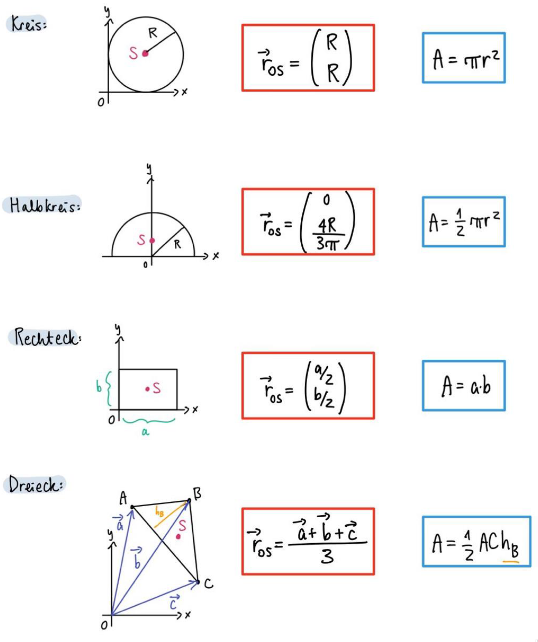 Kreis:
y
R
S
O
x
r⃗_OS = (R R)
A = πr²
Halbkreis:
y
S
R
O
x
r⃗_OS = (0 4R/3π)
A = ½ πr²
Rechteck:
y
b
S
O
x
a
r⃗_OS = (a/2 b/2)
A = a·b
Dreieck:
A
B
h_B
S
a⃗
b⃗
c⃗
C
y
O
x
r⃗_OS = (a⃗ + b⃗ + c⃗)/3
A = ½ ACh_B